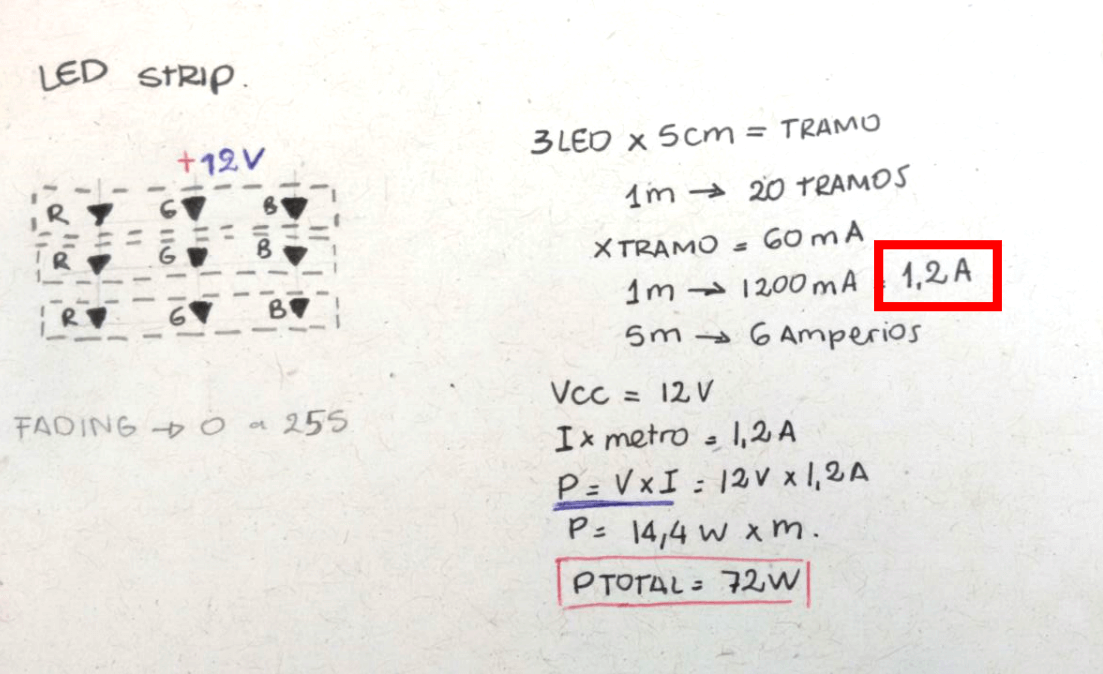 LED STRIP.
+12V
R G B
R G B
R G B
FADING → 0 a 255
3 LED x 5cm = TRAMO
1m → 20 TRAMOS
X TRAMO = 60 mA
1m → 1200 mA = 1,2 A
5m → 6 Amperios
Vcc = 12 V
I x metro = 1,2 A
P = V x I = 12V x 1,2 A
P = 14,4 W x m.
P TOTAL = 72W